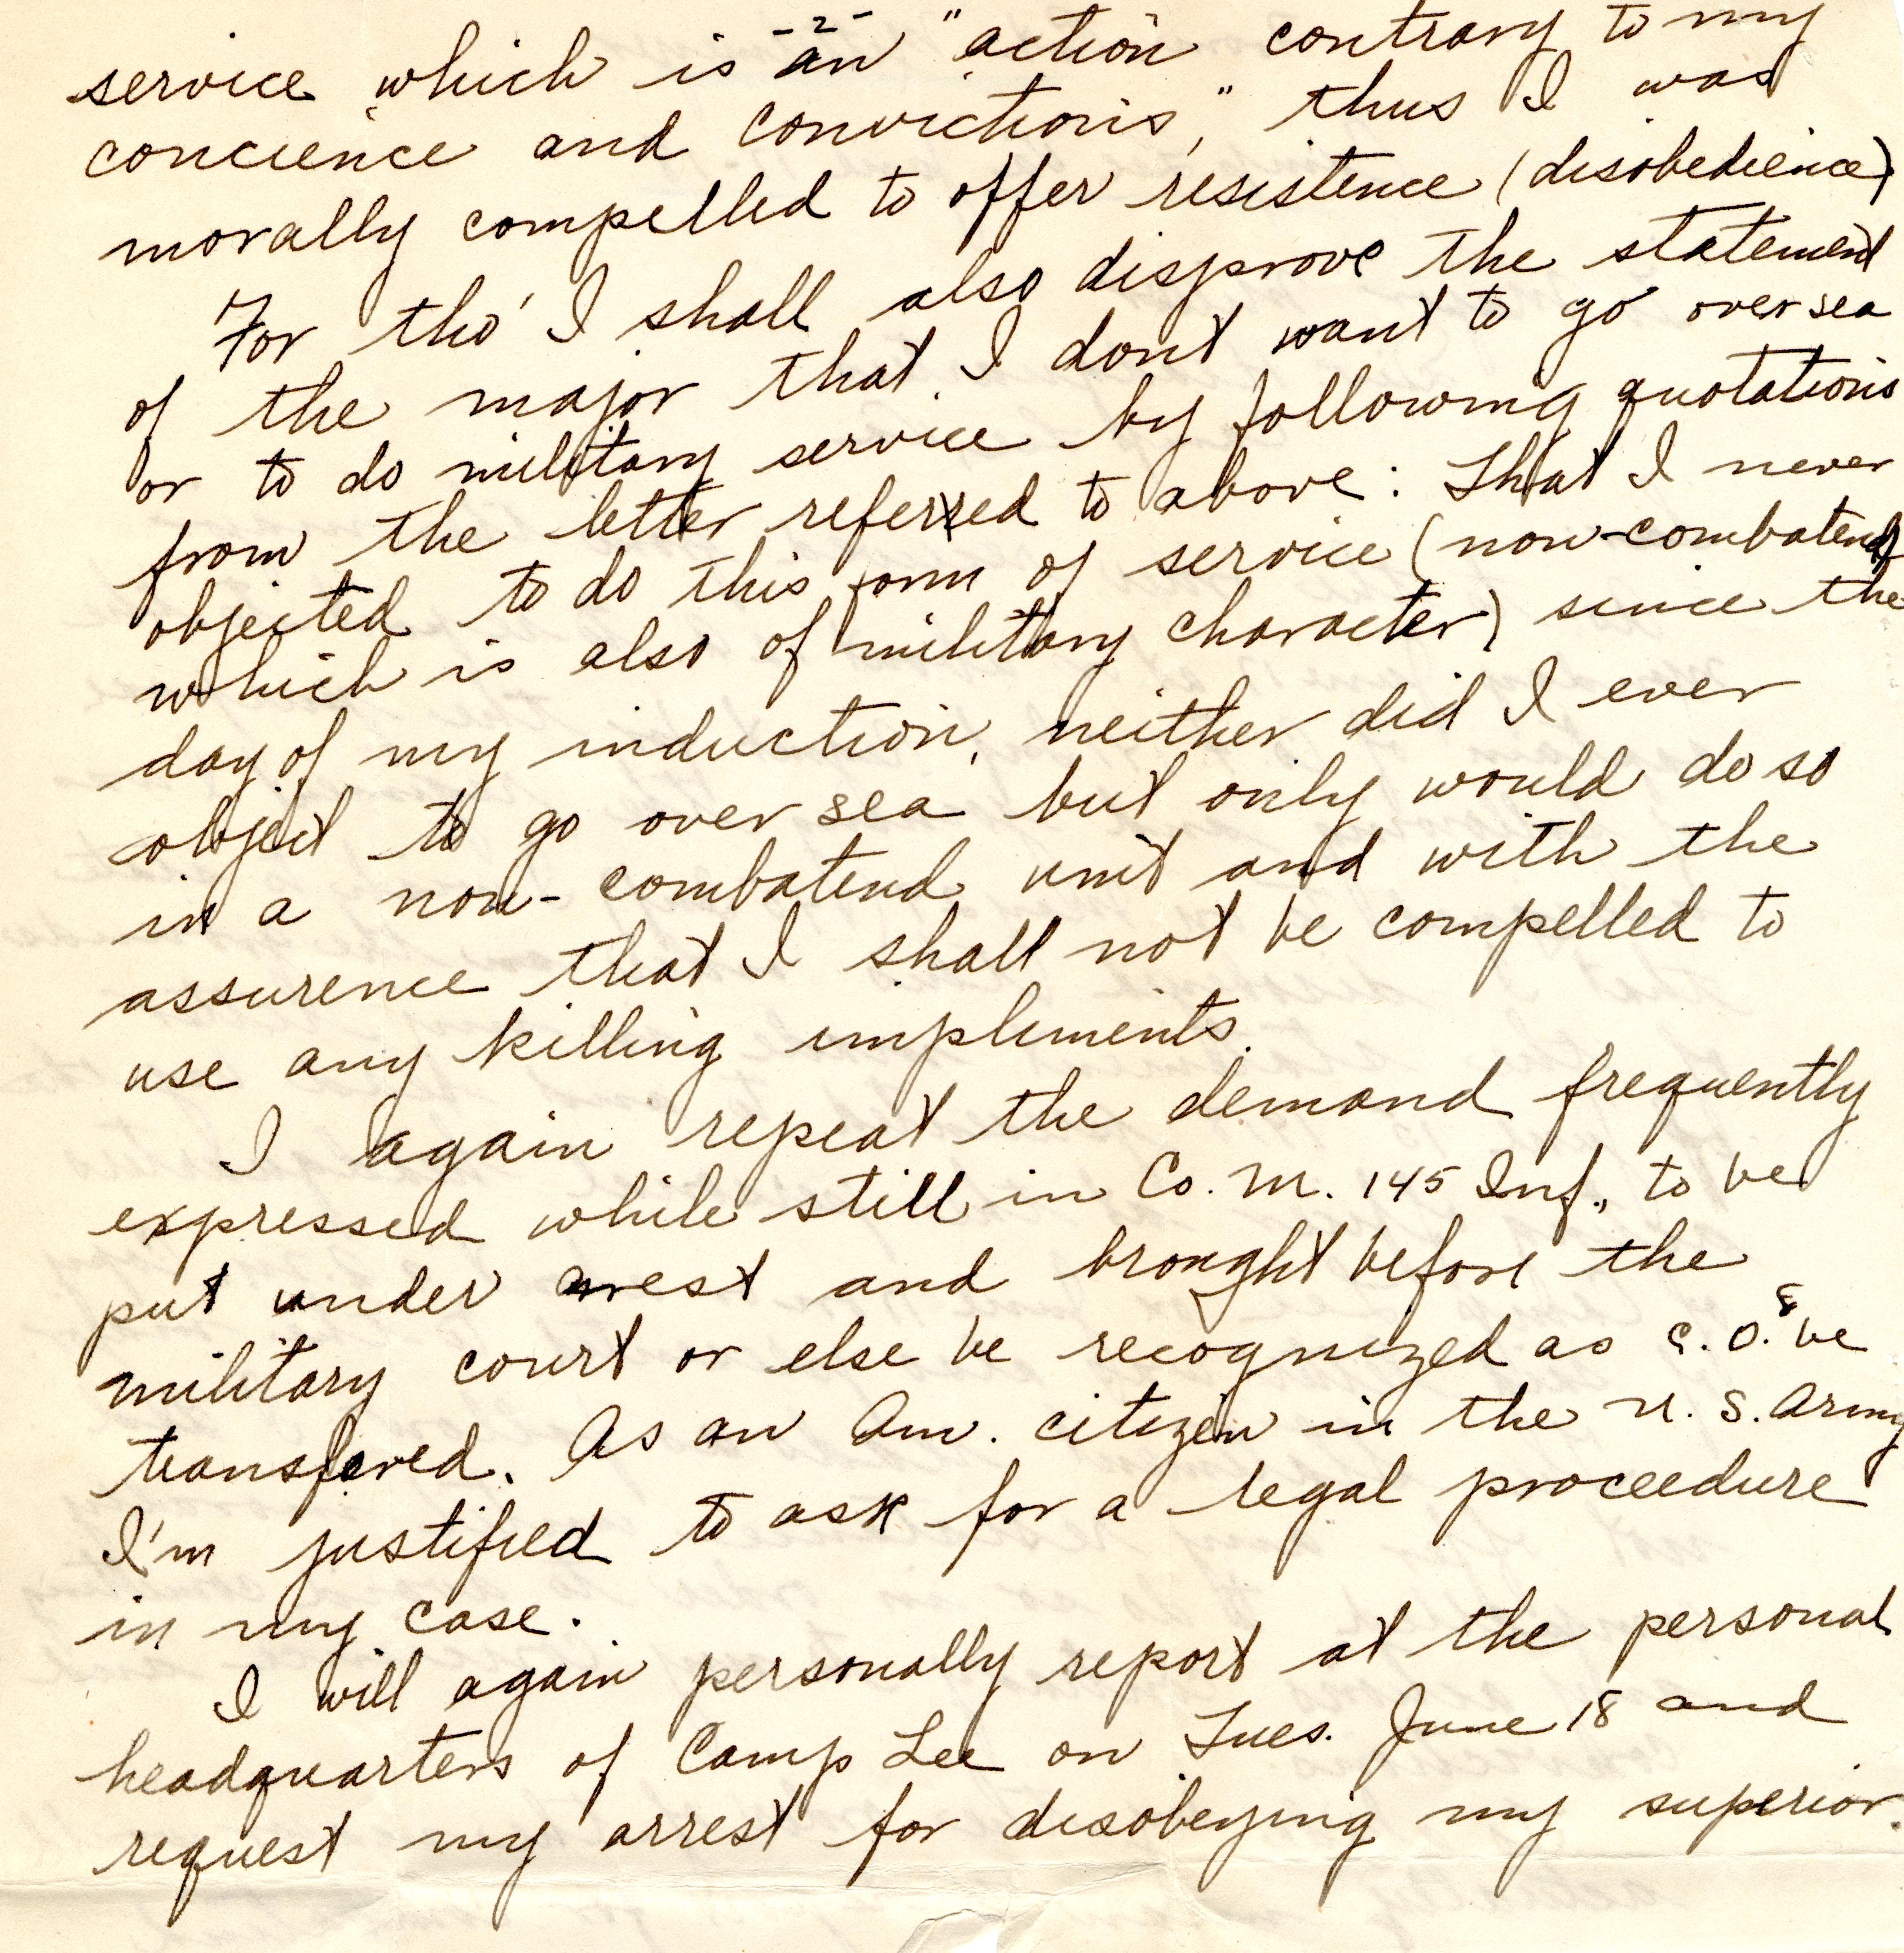 -2-
service which is an "action contrary to my
concience and convictions," thus I was
morally compelled to offer resistence (disobedience)
For tho' I shall also disprove the statement
of the major that I dont want to go over sea
or to do military service by following quotations
from the letter referred to above: That I never
objected to do this form of service (non-combatend
which is also of military character) since the
day of my induction, neither did I ever
object to go over sea but only would do so
in a non-combatend unit and with the
assurence that I shall not be compelled to
use any killing impliments.
I again repeat the demand frequently
expressed while still in Co. M. 145 Inf., to be
put under arrest and brought before the
military court or else be recognized as C.O. & be
transfered. As an Am. citizen in the U.S. Army
I'm justified to ask for a legal proceedure
in my case.
I will again personally report at the personal
headquarters of Camp Lee on Tues. June 18 and
request my arrest for disobeying my superior.